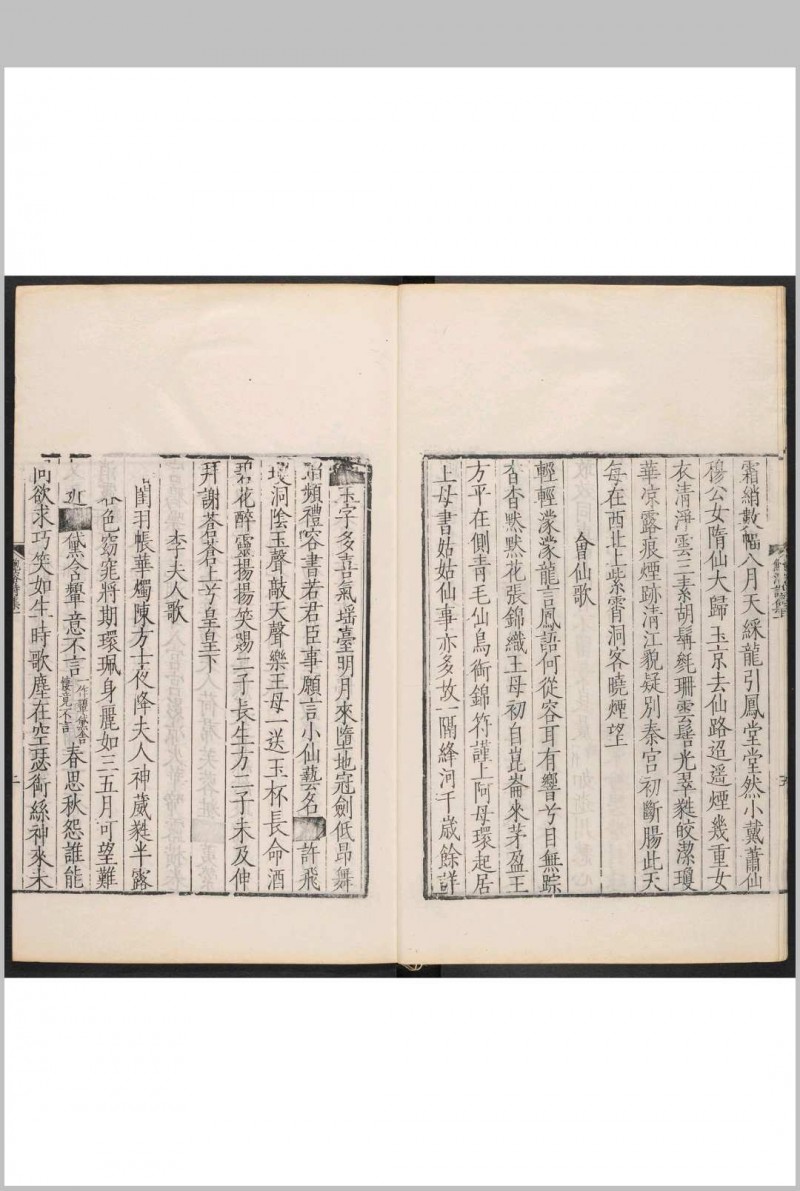 霜綃數幅八月天綵龍引鳳堂堂然小戴蕭仙
穆公女隋仙大歸玉京去仙路迢遥煙幾重女
衣清淨雲三素胡髯毿珊雲髻光翠蕤皎潔瓊
華凉露痕煙跡清江貌疑別秦宮初斷腸此天
每在西北上紫霄洞客曉煙望
會仙歌
輕輕濛濛龍言鳳語何從容耳有響兮目無踪
杳杳默默花張錦織王母初自崑崙來茅盈王
方平在側青毛仙鳥銜錦符謹上阿母環起居
上母書姑姑仙事亦多故一隔絳河千歲餘詳
玉字多喜氣瑶臺明月來墮地冠劍低昂舞
蹈頻禮容書若君臣事願言小仙藝名許飛
洞陰玉聲敲天聲樂王母一送玉杯長命酒
碧花醉靈揚揚笑賜二子長生方二子未及伸
拜謝蒼蒼上兮皇皇下
李夫人歌
閨羽帳華燭陳方士夜降夫人神葳蕤半露
色窈窕將期環珮身麗如三五月可望難
近黛含顰意不言春思秋怨誰能
問欲求巧笑如生時歌塵在空瑟銜絲神來未